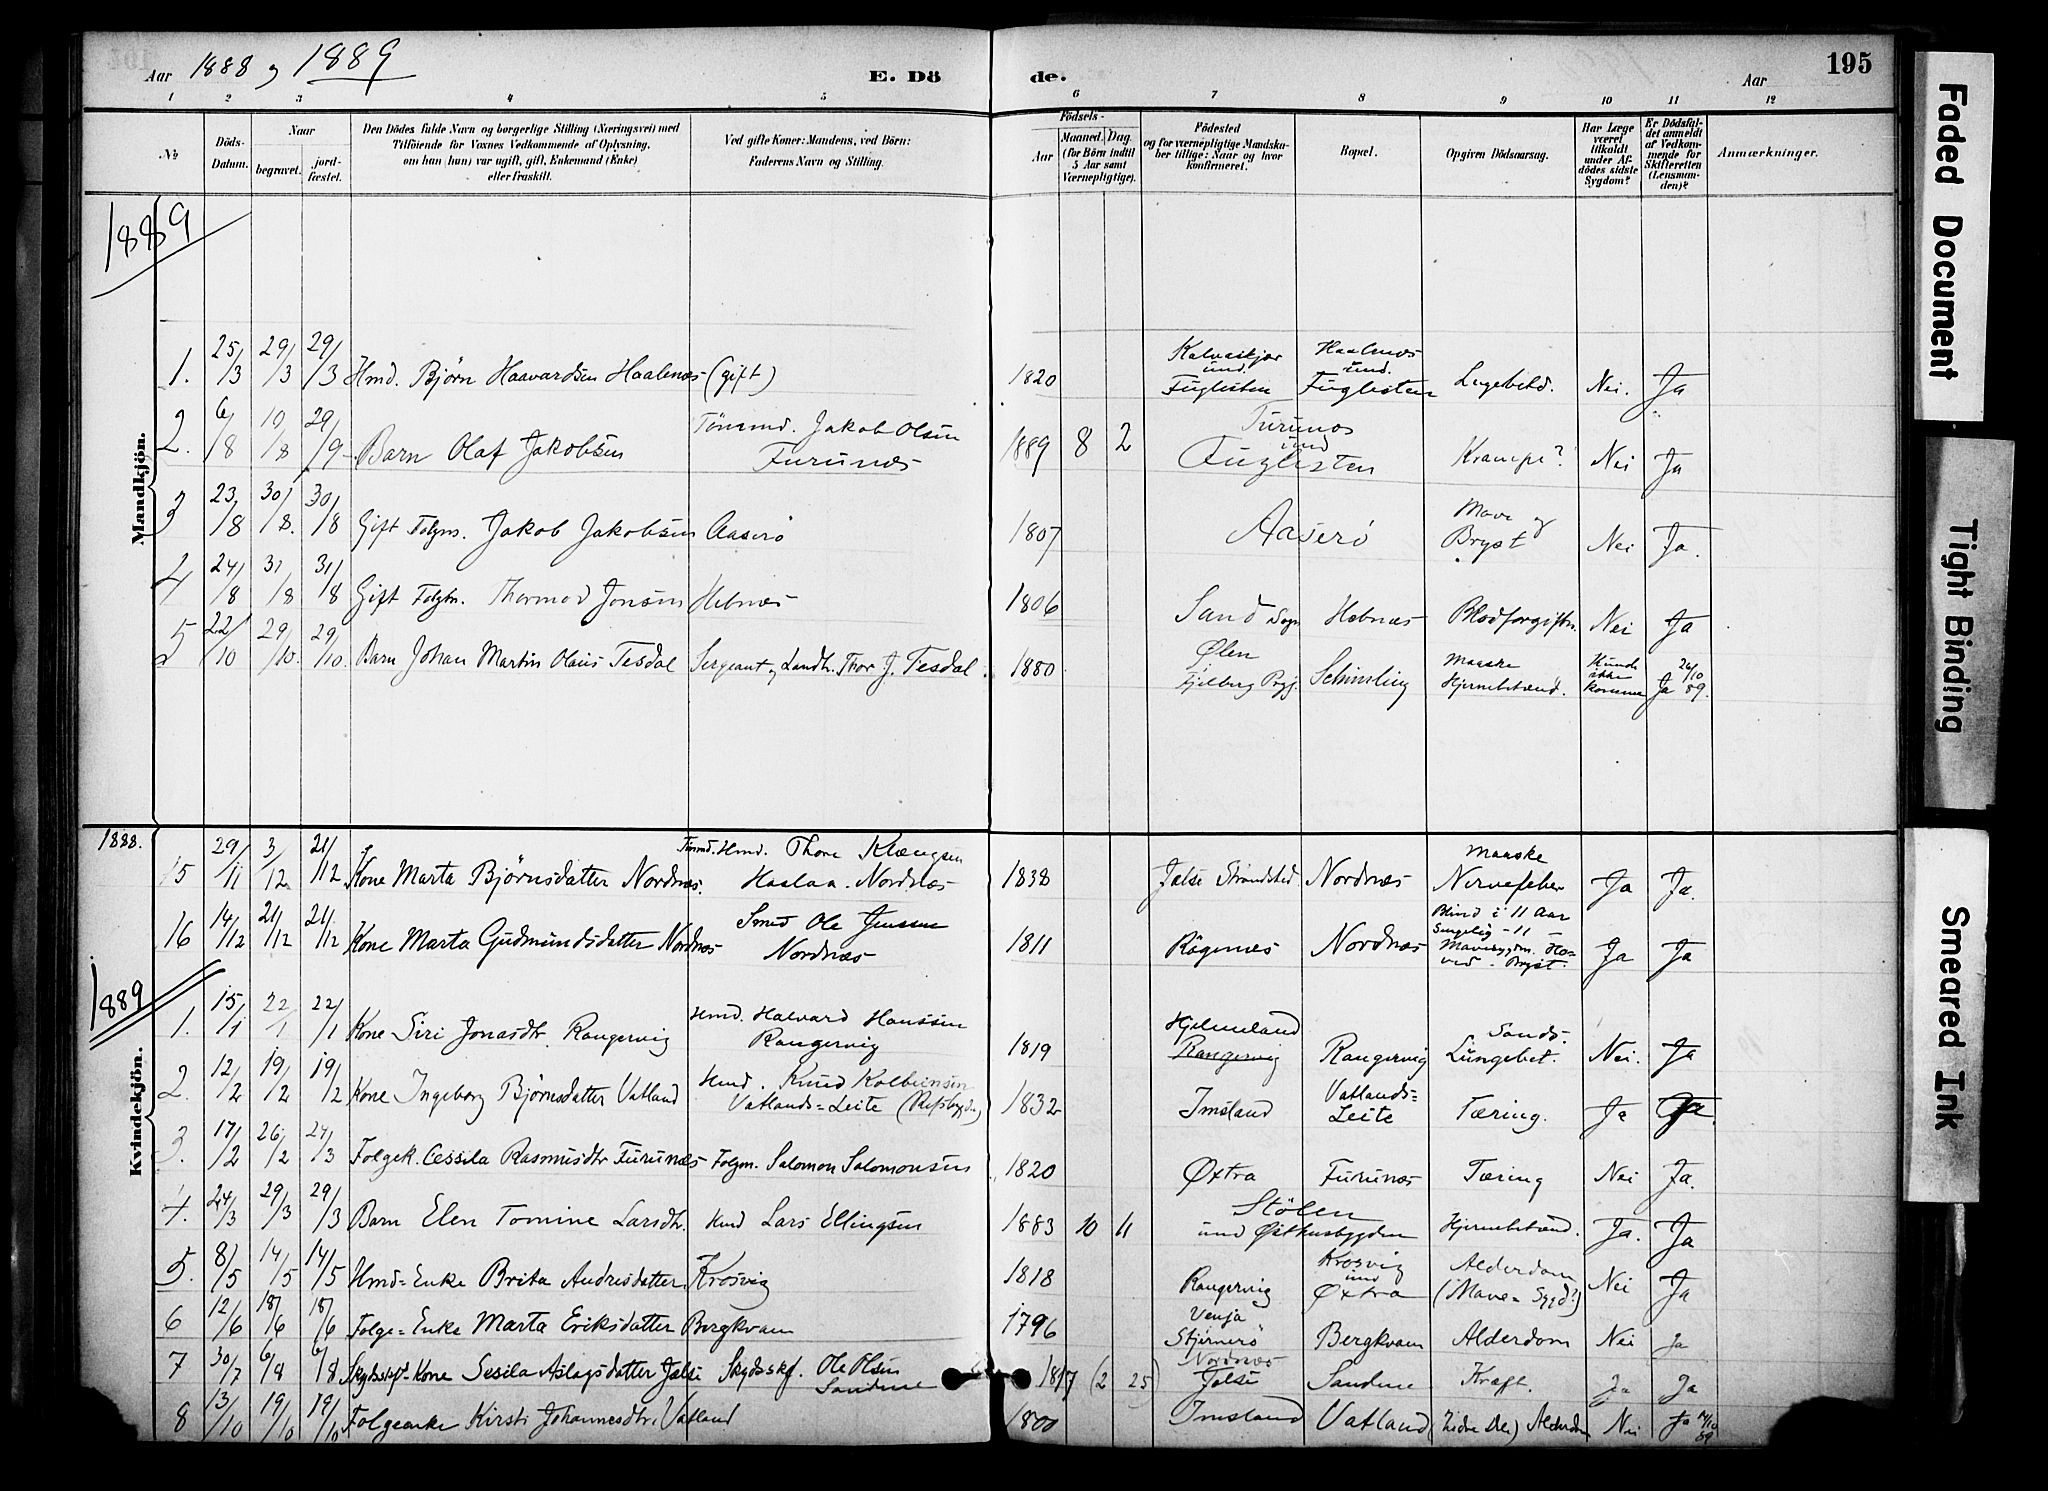 Aar 1888 og 1889 E. Döde. Aar 195
1 2 3 4 5 6 7 8 9 10 11 12
No
Döds-Datum.
Naar
begravet.
jord-fæstet.
Den Dödes fulde Navn og borgerlige Stilling (Næringsvei) med
Tilföiende for Voxnes Vedkommende af Oplysning,
om han (hun) var ugift, gift, Enkemand (Enke)
eller fraskilt.
Ved gifte Koner: Mandens, ved Börn:
Faderens Navn og Stilling.
Födsels-
Aar
Maaned. Dag.
(for Börn indtil
5 Aar samt
Værnepligtige).
Födested
og for værnepligtige Mandska-
ber tillige: Naar og hvor
konfirmeret.
Bopæl.
Opgiven Dödsaarsag.
Har Læge
været
tilkaldt
under Af-
dödes sidste
Sygdom?
Er Dödsfal-
det anmeldt
af Vedkom-
mende for
Skifteretten
(Lensman-
den)?
Anmærkninger.
1889
Mandkjön.
1. 25/3 29/3 29/3 Hmd. Björn Haavardsen Haalenæs (gift) 1820 Kalvaskjær und. Fuglesten Haalenæs und. Fuglesten Nei. Ja
2. 6/8 10/8 29/9 Barn Olaf Jakobsen Tömmd. Jakob Olsen Furunæs 1889 8 2 Furunæs und Fuglesten Krampe? Nei Ja
3 23/8 30/8. 30/8 Gift Folgm. Jakob Jakobsen Aaserö 1807 Aaserö Mave og Bryst Nei Ja.
4 24/8 31/8 31/8 Gift Folgm. Thormod Jonsen Hebnæs 1806 Sand Sogn Hebnæs Blodforgiftn. Nei Ja
5 22/10 29/10. 29/10. Barn Johan Martin Olaus Tesdal Sergeant og Landh. Thor J. Tesdal. 1880 Ølen Fjelberg Prgj. Maaske Hjernebetænd. Kunde ikke komme Ja 26/10 89.
1888.
15 29/11 3/12 21/12 Kone Marta Björnsdatter Nordnæs. Hmd. Thore Klængsen Haalaa. Nordnæs 1838 Jelse Strandsted Nordnæs Maaske Nervefeber Ja Ja.
16 14/12 21/12 21/12 Kone Marta Gudmundsdatter Nordnæs Smed Ole Jensen Nordnæs 1811 Rögenæs Nordnæs Blind i 11 Aar Sengelig - 11 - Bryst. Ja Ja
1889
Kvindekjön.
1. 15/1 22/1 22/1 Kone Siri Jonasdtr. Rangervig Hmd. Halvard Hanssen Rangervig 1819 Hjelmeland Rangervig Rangervig Lungebet. Nei. Ja
2. 12/2 19/2 19/2 Kone Ingeborg Björnsdatter Vatland Hmd. Knud Kolbeinsen Vatlands=Leite 1832 Imsland Vatlands=Leite Tæring. Ja Ja.
3. 17/2 26/2 24/3 Folgek. Cessila Rasmusdtr Furunæs Folgm. Salomon Salomonsen 1820 Øxtra Furunæs Tæring Nei Ja.
4. 24/3 29/3 29/3 Barn Elen Tomine Larsdtr. Hmd Lars Ellingsen 1883 10 11 Stölen und Østhusbygden Hjernebetænd. Ja. Ja
5. 8/5 14/5 14/5 Hmd=Enke Brita Andersdatter Krosvig 1818 Rangervig Krosvig und Øxtra Alderdom (Mave=Sygd?) Nei Ja
6 12/6 18/6 18/6 Folge=Enke Marta Eriksdatter Bergkvam 1796 Venja Stjernerö Bergkvam Alderdom Nei Ja
7 30/7 6/8 6/8 Skydsskf.-Kone Sesila Aslagsdatter Jelse Skydsskf. Ole Olsen Sandene 1817 (2 25) Nordnæs Jelse Sandene Kræft. Ja Ja
8 13/10 19/10 19/10 Folgeenke Kirsti Johannesdtr. Vatland 1800 Imsland Vatland Nei Ja
Faded Document
Tight Binding
Smeared Ink